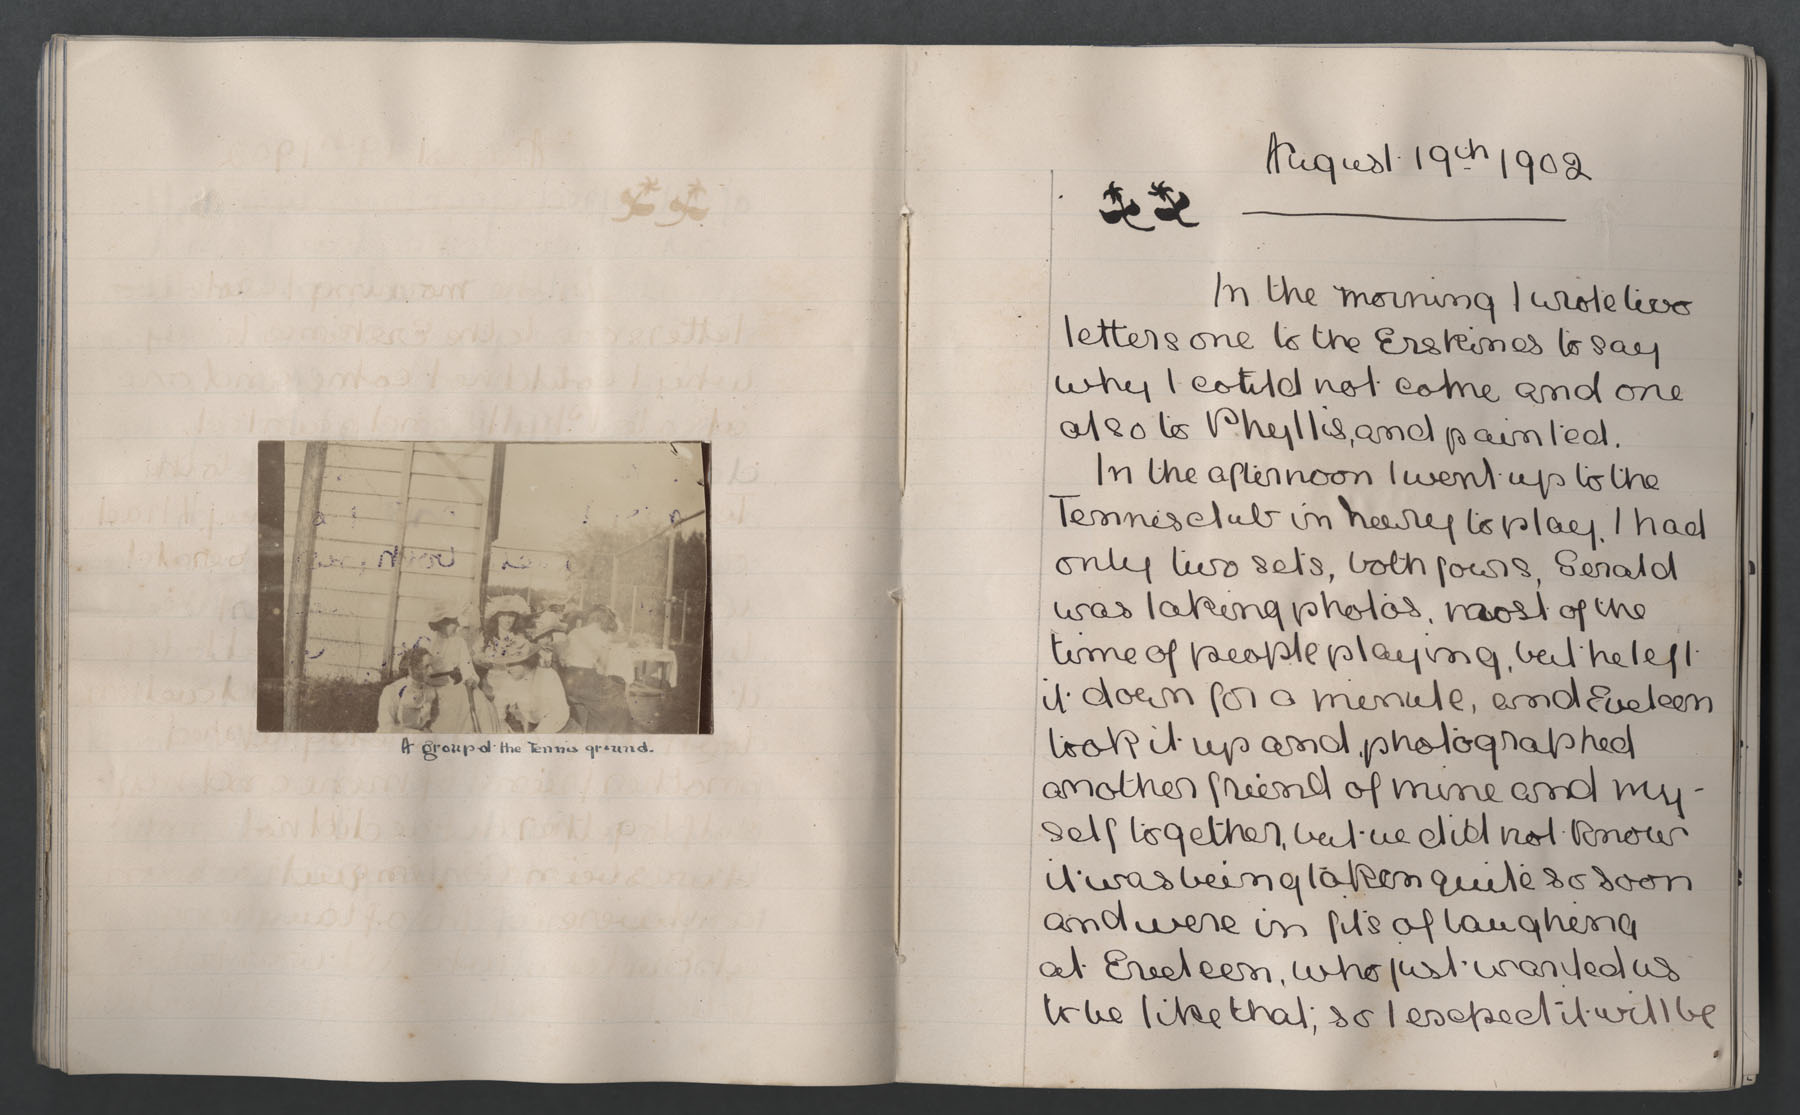 A group at the Tennis ground.
August 19th 1902
In the morning I wrote two
letters one to the Erskines to say
why I could not come and one
also to Phyllis, and painted.
In the afternoon I went up to the
Tennis club in to play. I had
only two sets, both fours, Gerald
was taking photos, most of the
time of people playing, but he left
it down for a minute, and Eveleen
took it up and photographed
another friend of mine and my-
self together, but we did not know
it was being taken quite so soon
and were in fits of laughing
at Eveleen, who just wanted us
to be like that; so I expect it will be